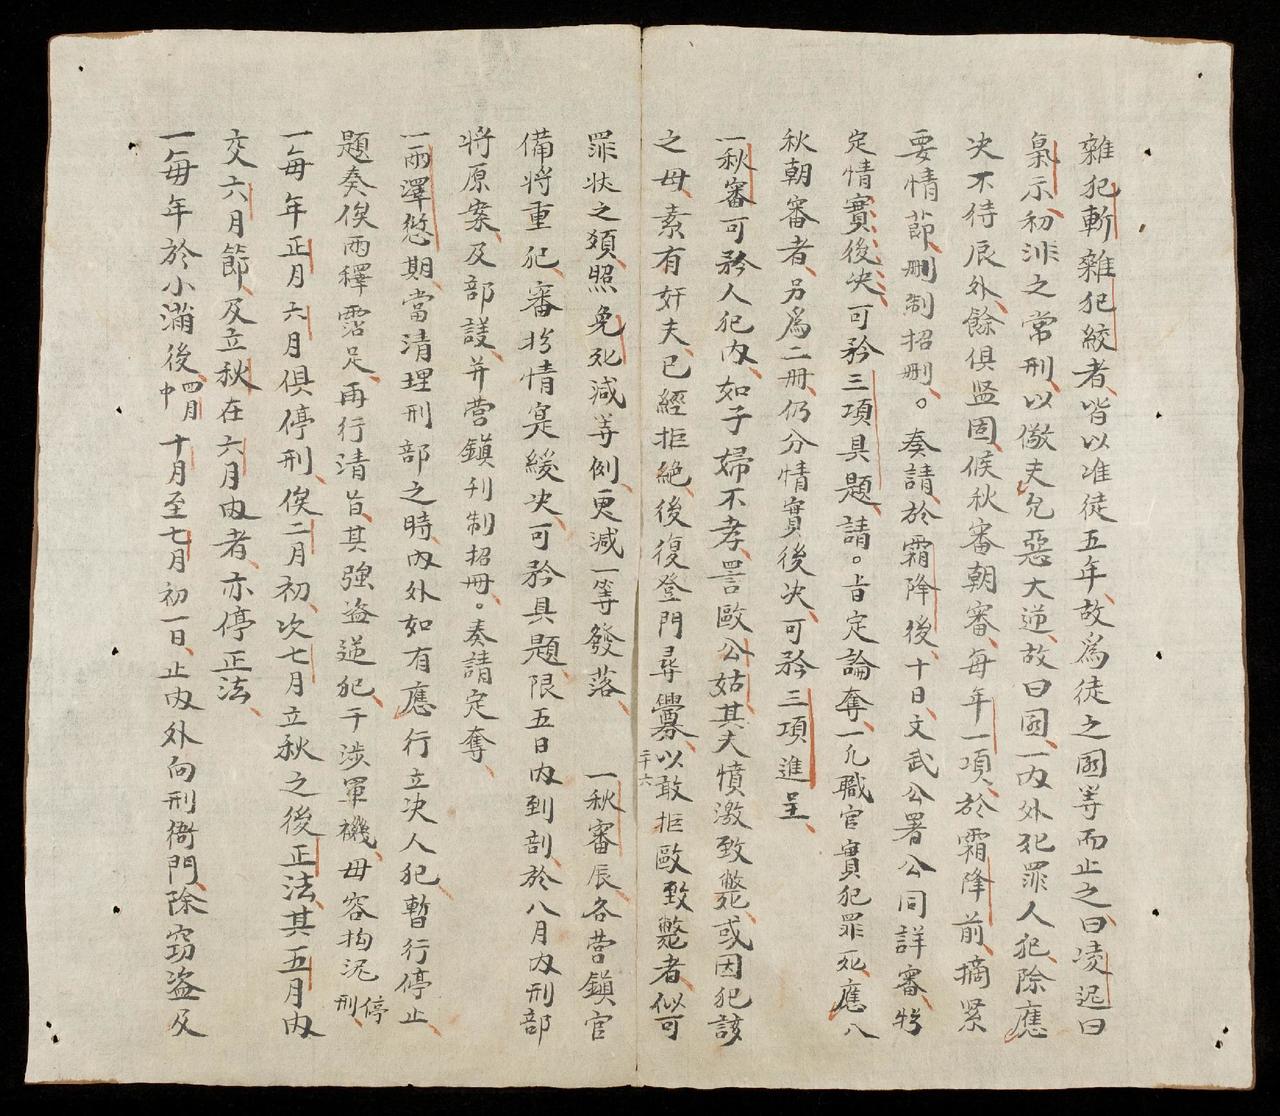 雜犯斬雜犯絞者皆以准徒五年故為徒之圄等而止之曰凌遲曰
梟示初非之常刑以儆夫兇惡大逆故曰圄一內外犯罪人犯除應
决不待辰外餘俱监固候秋審朝審每年一項於霜降前摘緊
要情節刪制招刪。奏請於霜降後十日文武公署公同詳審
定情實後决可矜三項具題請。旨定論奪一凡職官實犯罪死應八
秋朝審者另為二冊仍分情實後决可矜三項進呈
一秋審可矜人犯內如子婦不孝詈毆公姑其夫憤激致斃死或因犯該
之母素有奸夫已經拒絕後復登門尋釁以敢拒毆致斃者似可
二十六
罪狀之須照免死減等例更減一等發落 一秋審辰各营鎮官
備將重犯審於情寔緩决可矜具題限五日內到剖於八月內刑部
將原案及部護并营鎮刋制招冊。奏請定奪
一雨澤愆期當清理刑部之時內外如有應行立决人犯暫行停止
題奏俟雨釋霑足再行清旨其強盗逆犯干涉軍機毋容拘泥停刑
一每年正月六月俱停刑俟二月初次七月立秋之後正法其五月內
交六月節及立秋在六月內者亦停正法
一每年於小滿後四月中十月至七月初一日止內外向刑衙門除窃盗及